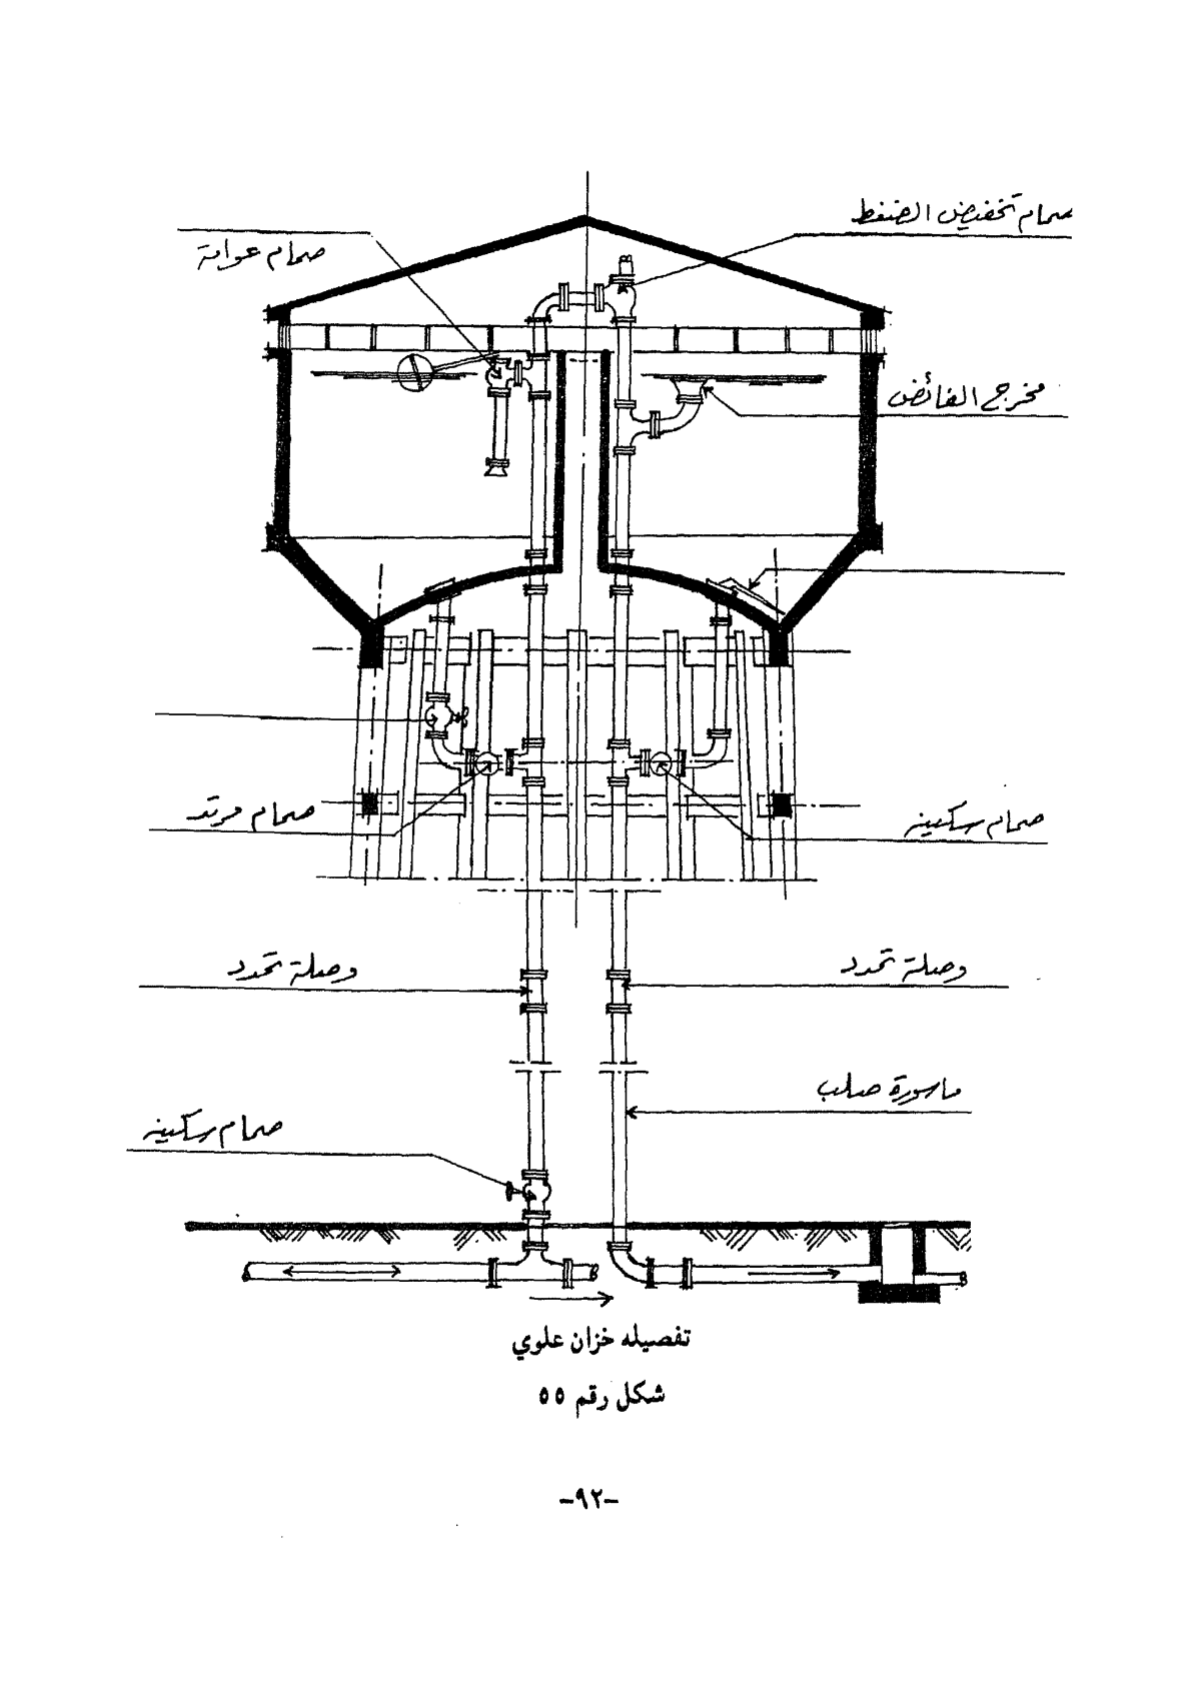 صمام تخفيض الضغط
صمام عوامة
مخرج الفائض
صمام مرتد
صمام سكينه
وصلة تمدد
وصلة تمدد
ماسورة صلب
صمام سكينه
تفصيله خزان علوي
شكل رقم ٥٥
-٩٢-